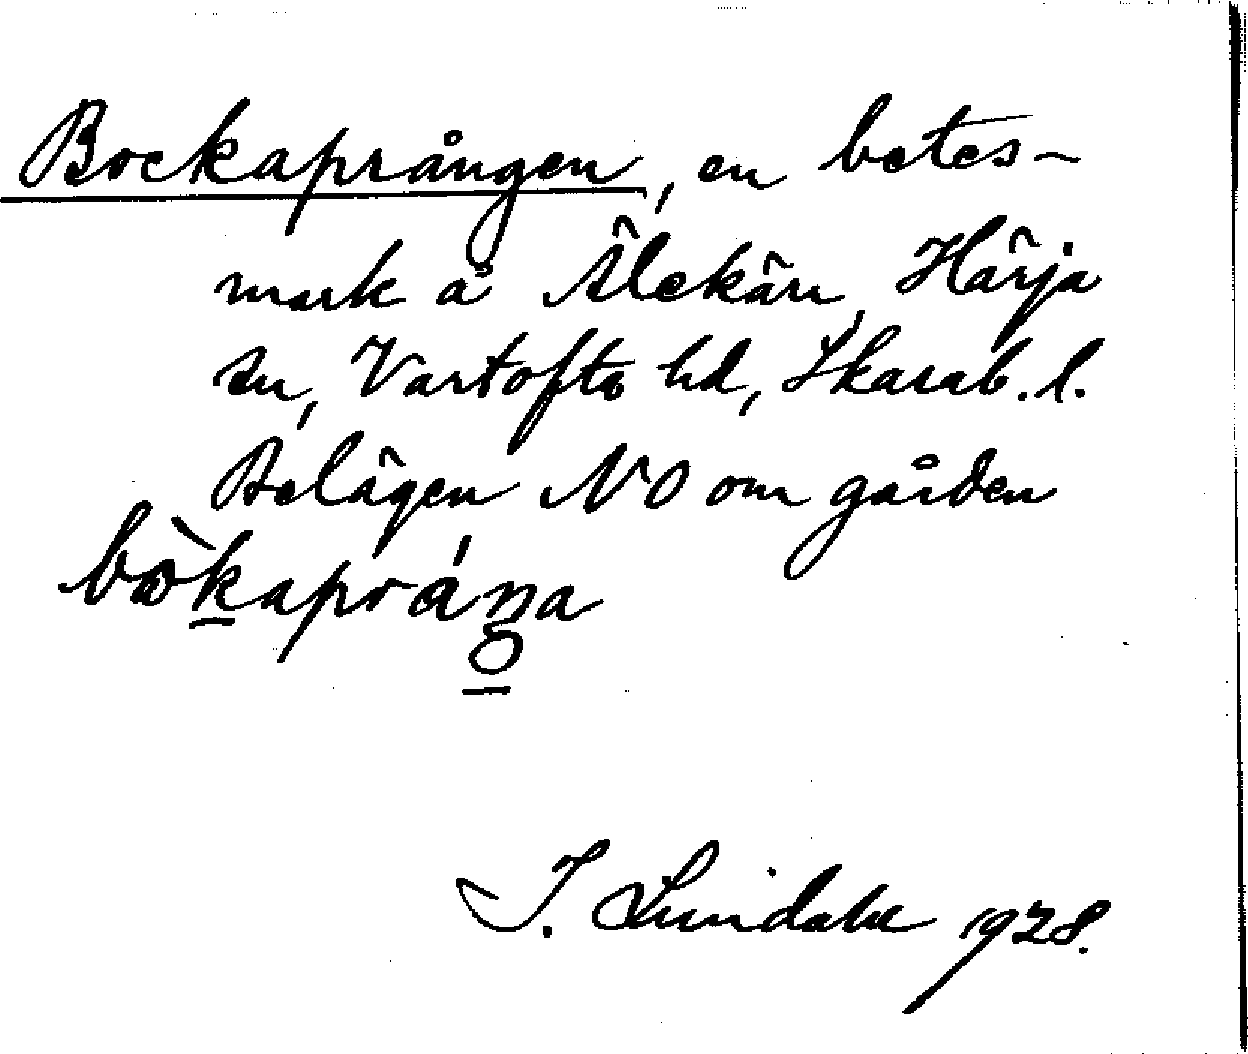 Bockaprången, en betes-
mark å Älekärr, Härja
sn, Vartofta hd, Skarab. l.
Belägen NO om gården
bòkapráŋa
I. Lundahl 1928.